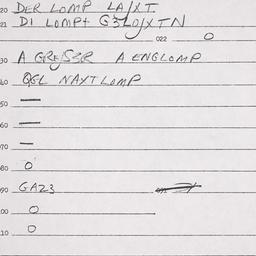 20 DER LOMP LA/XT.
21 DI LOMP+ G3LO/XTN
022 O
30 A GRE/S3R A ENGLOMP
40 QGL NAXTLOMP
50 —
60 —
70 —
80 O
90 GAZ3
00 O
10 O